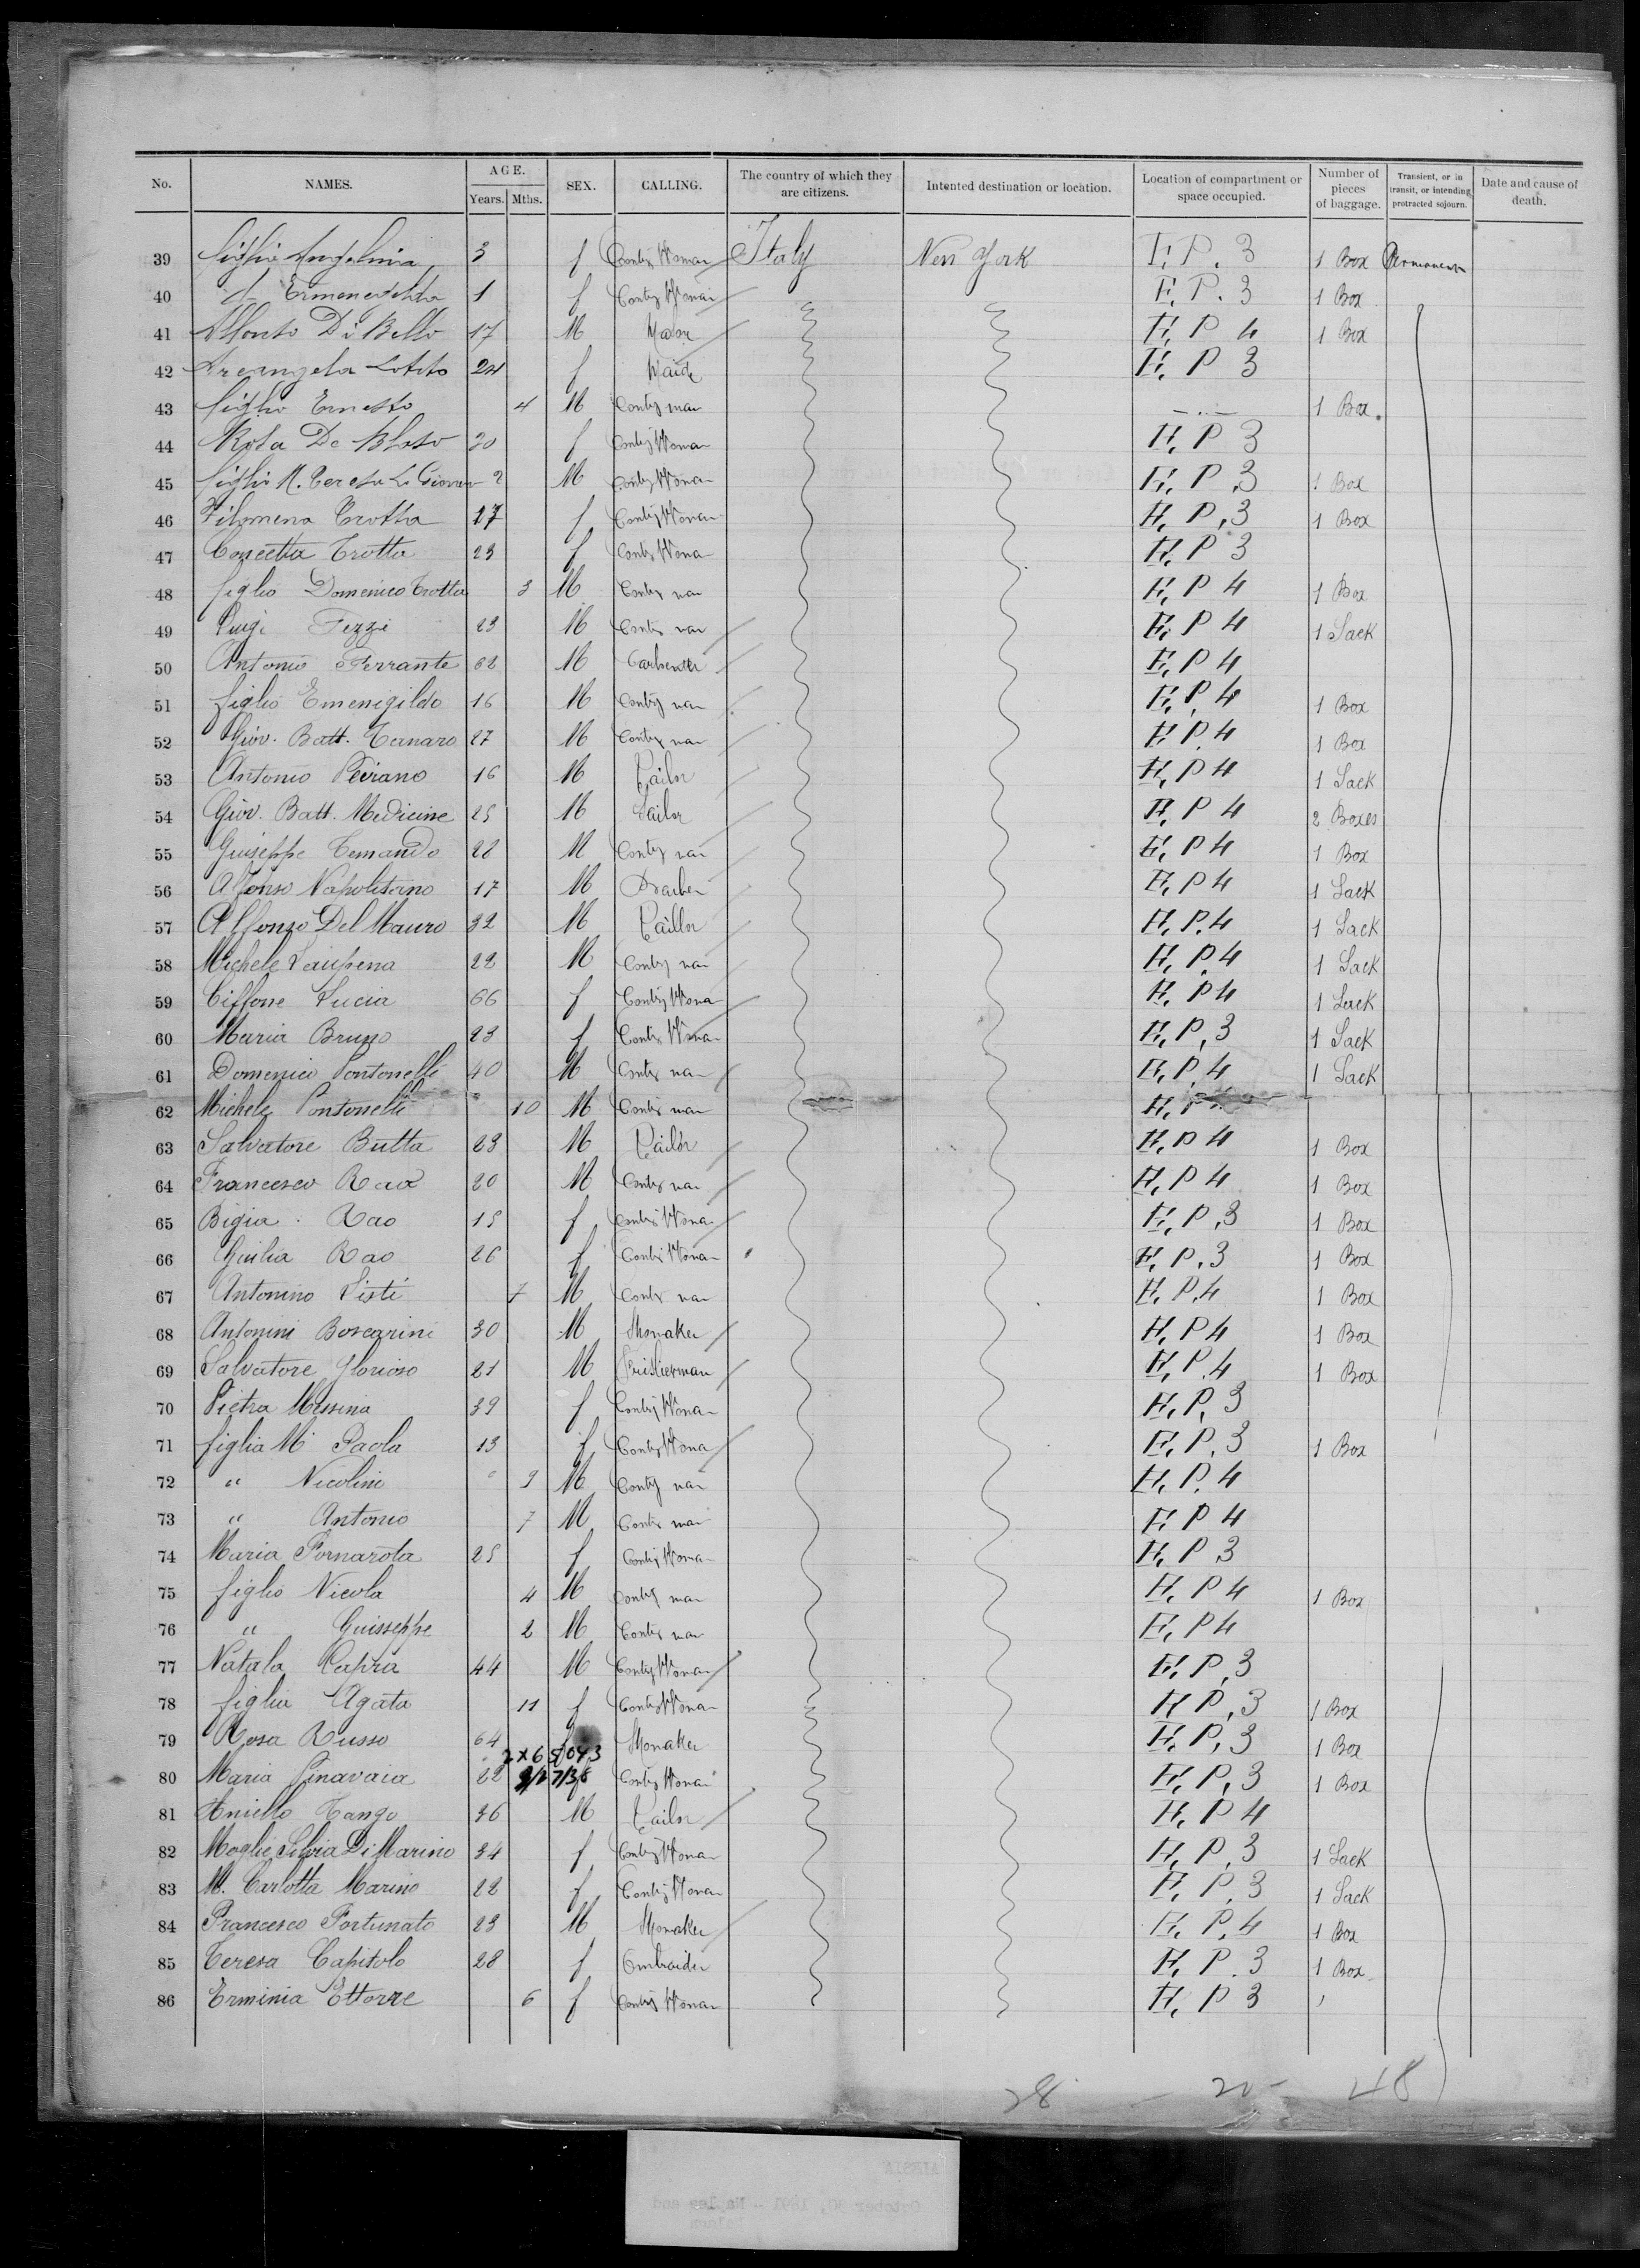 No. NAMES. AGE. Years. Mths. SEX. CALLING. The country of which they are citizens. Intented destination or location. Location of compartment or space occupied. Number of pieces of baggage. Transient, or in transit, or intending protracted sojourn. Date and cause of death.
39 figlia Angelina 3 f Contry Woman Italy New York H. P. 3 1 Box Permanent
40 1 f Contry Woman H. P. 3 1 Box
41 Alfonso Di Bello 17 M H. P 4 1 Box
42 Arcangela Lotito 24 f Maid H. P 3
43 figlio Ernesto 4 M Contry man 1 Box
44 De f Contry Woman H. P 3
45 figlia M. Teresa 2 M Contry Woman H. P. 3 1 Box
46 Filomena Trotta 17 f Contry Woman H. P. 3 1 Box
47 Concetta Trotta 23 f Contry Woman H. P 3
48 figlio Domenico Trotta 3 M Contry man H. P 4 1 Box
49 Luigi Pezzi 23 M Contry man H. P 4 1 Sack
50 Antonio Ferrante M Carpenter H. P 4
51 figlio Emenigildo 16 M Contry man H. P. 4 1 Box
52 Giov. Batt. Tanaro 27 M Contry man H. P. 4 1 Box
53 Antonio 16 M Tailor H. P 4 1 Sack
54 Giov. Batt. Medicine 25 M Sailor H. P 4 2 Boxes
55 Guiseppe 22 M Contry man H. P 4 1 Box
56 Alfonso Napolitano 17 M H. P 4 1 Sack
57 Alfonzo Del Mauro 32 M Taillor H. P. 4 1 Sack
58 Michele 22 M Contry man H. P. 4 1 Sack
59 Ciffone Lucia 66 f Contry Woman H. P 4 1 Sack
60 Maria Bruno 23 f Contry Woman H. P. 3 1 Sack
61 Domenico Pontonelli 40 M Contry man H. P. 4 1 Sack
62 Michele Pontonelli " 10 M Contry man H. P
63 Salvatore Butta 23 M Tailor H. P 4 1 Box
64 Francesco Rao 20 M Contry man H. P 4 1 Box
65 Bigia Rao 15 f Contry Woman H. P. 3 1 Box
66 Giulia Rao 26 f Contry Woman H. P. 3 1 Box
67 Antonino Listi 7 M Contry man H. P. 4 1 Box
68 Antonini Boscarini 30 M Shomaker H. P 4 1 Box
69 Salvatore Glorioso 21 M Frisherman H. P. 4 1 Box
70 Pietra Messina 39 f Contry Woman H. P. 3
71 figlia Mª Paola 13 f Contry Woman H. P. 3 1 Box
72 " Nicolino " 9 M Contry man H. P. 4
73 " Antonio 7 M Contry man H. P 4
74 Maria Fornarota 25 f Contry Woman H. P 3
75 figlio Nicola 4 M Contry man H. P 4 1 Box
76 " Guisseppe 2 M Contry man H. P 4
77 Natala Capra 44 M Contry Woman H. P. 3
78 figlia Agata 11 f Contry Woman H. P. 3 1 Box
79 Rosa Russo 64 f Shomaker H. P. 3 1 Box
2X65043
80 Maria 22 f Contry Woman H. P. 3 1 Box
81 Aniello Tango 36 M Tailor H. P 4
82 Moglie Silvia Di Marino 34 f Contry Woman H. P. 3 1 Sack
83 M. Carlotta Marino 22 f Contry Woman H. P. 3 1 Sack
84 Francesco Fortunato 23 M Shomaker H. P. 4 1 Box
85 Teresa Capitolo 28 f Ombroider H. P. 3 1 Box
86 Erminia Ettorre 6 f Contry Woman H. P 3
28 - 20 - 48